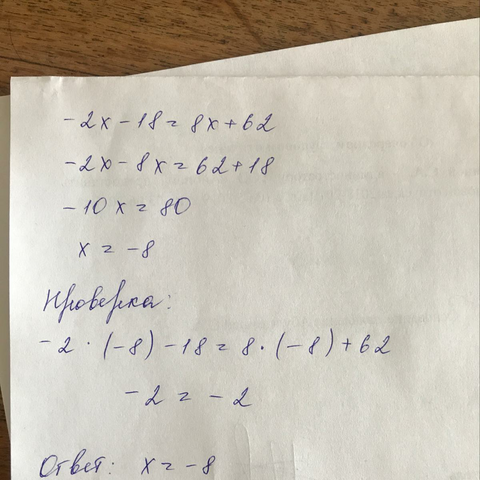 -2x-18=8x+62
-2x-8x=62+18
-10x=80
x=-8
Проверка:
-2·(-8)-18=8·(-8)+62
-2=-2
Ответ: x=-8